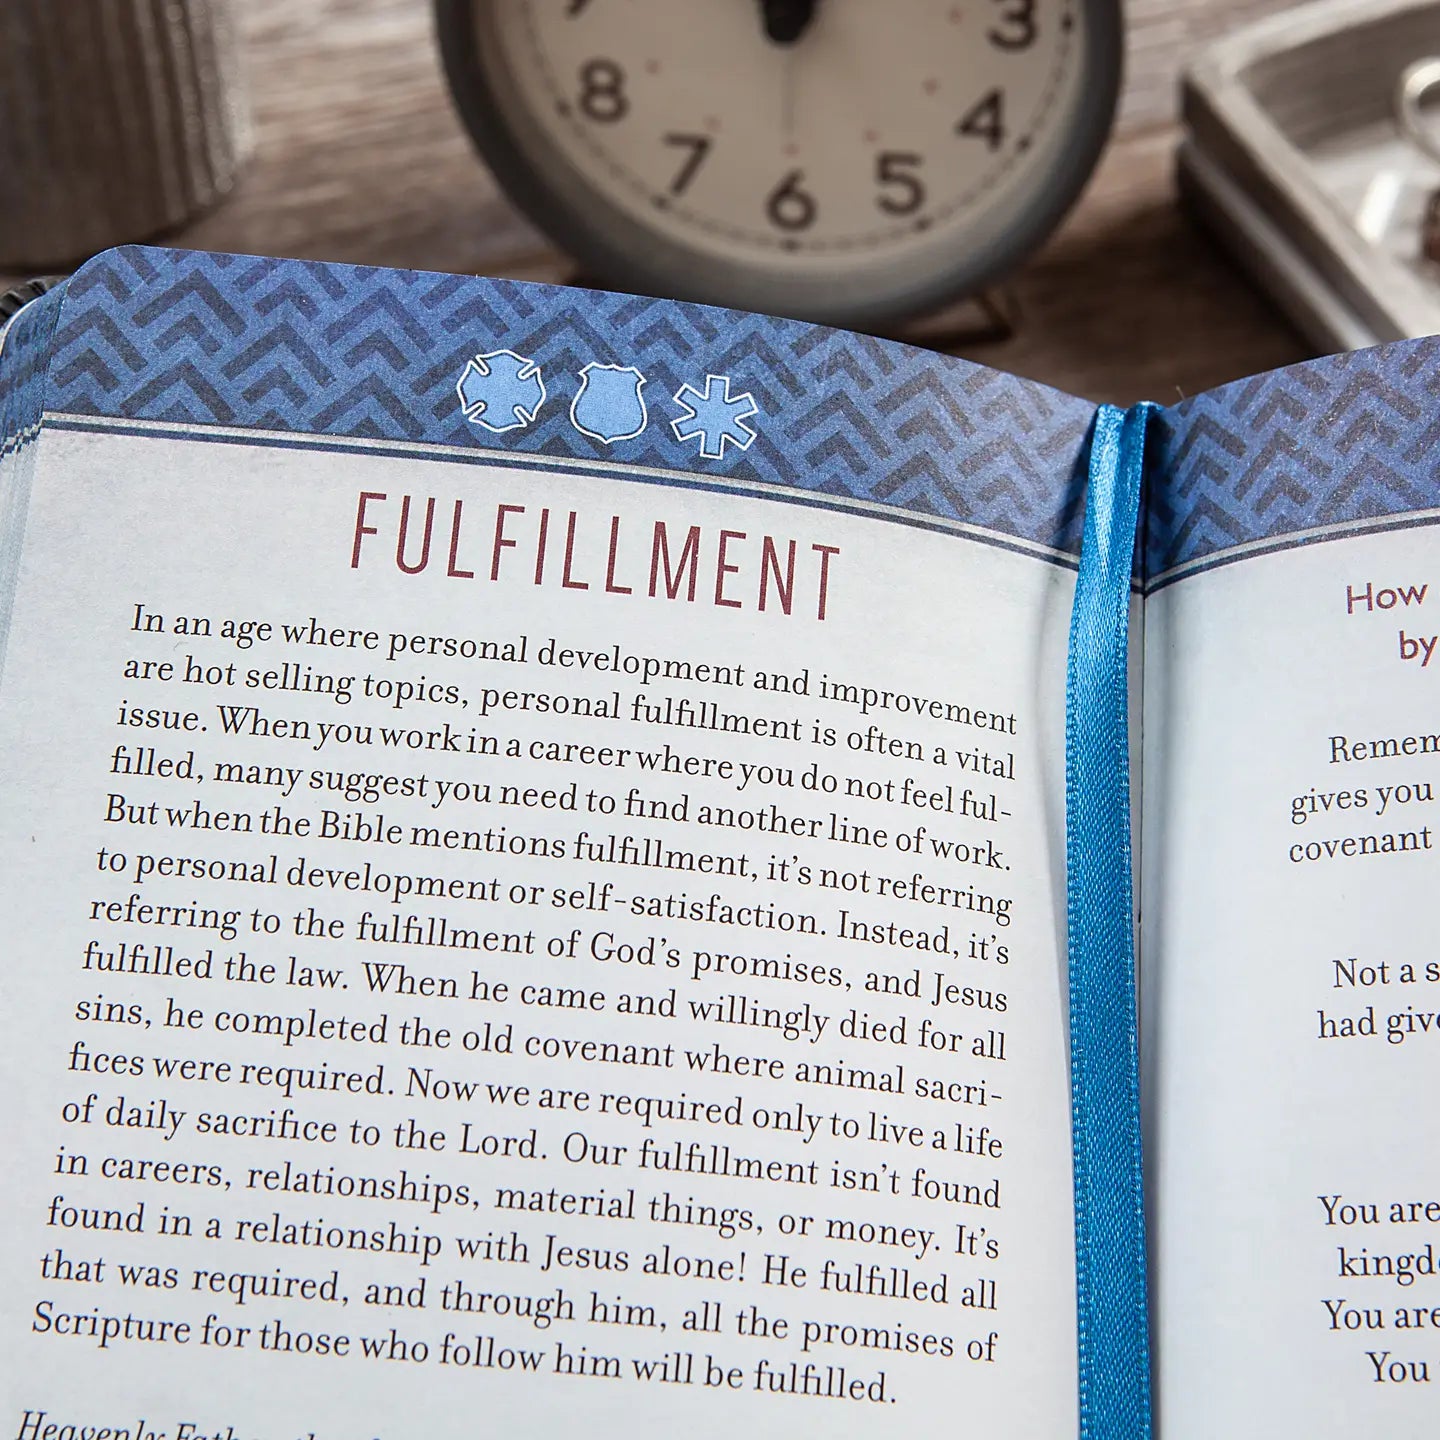 3
8
4
7
5
6
FULFILLMENT
In an age where personal development and improvement
are hot selling topics, personal fulfillment is often a vital
issue. When you work in a career where you do not feel ful-
filled, many suggest you need to find another line of work.
But when the Bible mentions fulfillment, it's not referring
to personal development or self-satisfaction. Instead, it's
referring to the fulfillment of God's promises, and Jesus
fulfilled the law. When he came and willingly died for all
sins, he completed the old covenant where animal sacri-
fices were required. Now we are required only to live a life
of daily sacrifice to the Lord. Our fulfillment isn't found
in careers, relationships, material things, or money. It's
found in a relationship with Jesus alone! He fulfilled all
that was required, and through him, all the promises of
Scripture for those who follow him will be fulfilled.
Heavenly
How
by
gives you
covenant
Not a
had
You are
You are
You